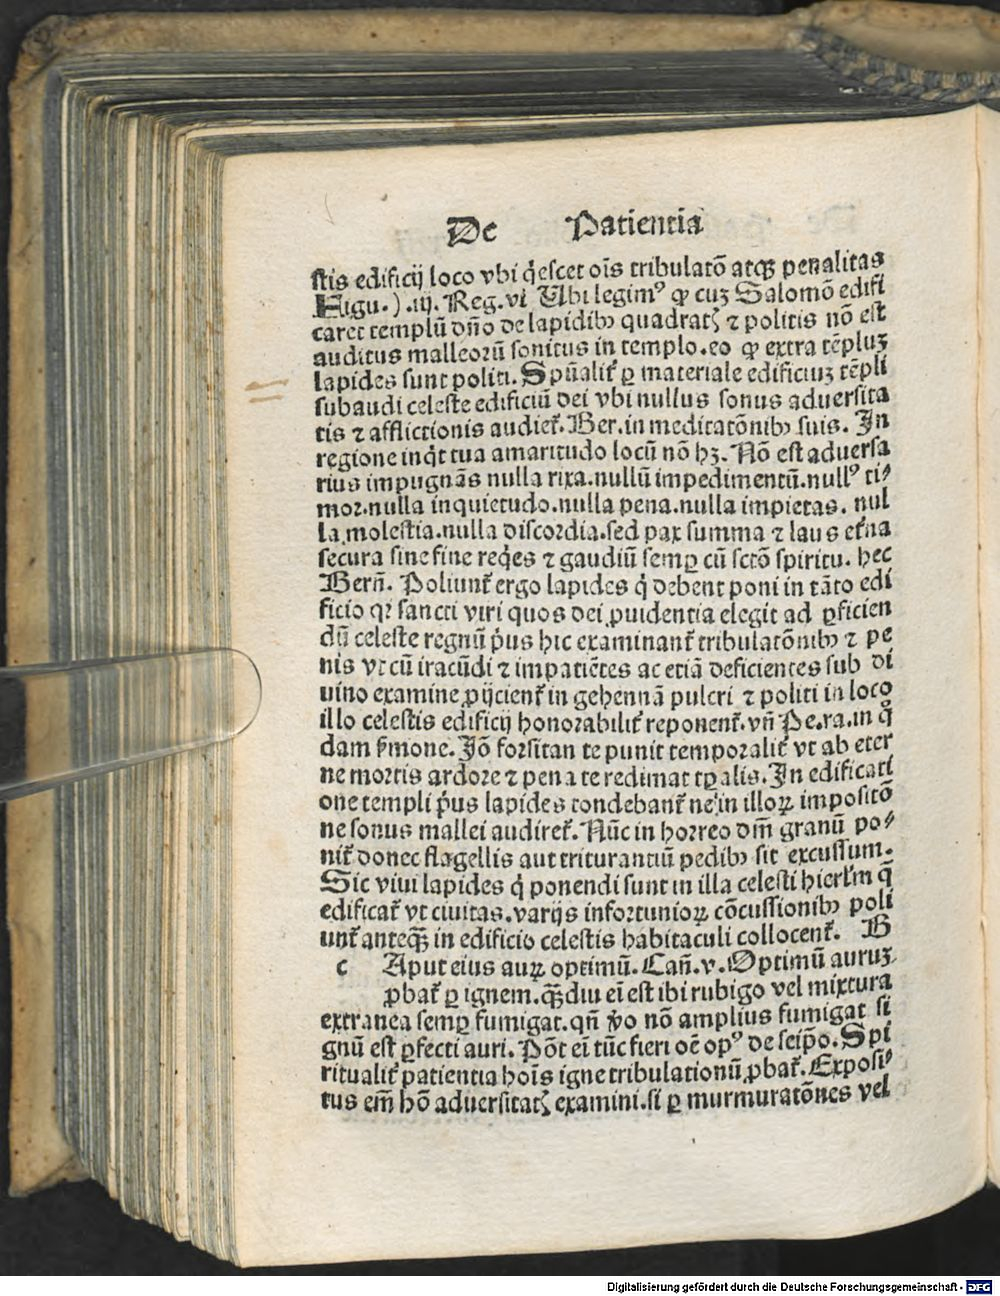 De Patientia
stis edificij loco vbi q̇escet oīs tribulatō atqꝫ penalitas
Figu.).iij.Reg.vi Vbi legimꝰ ꝙ cuꝫ Salomō edifi
caret templū dn̄o de lapidibꝫ quadratꝭ ⁊ politis nō est
auditus malleorū sonitus in templo.eo ꝙ extra tēpluꝫ
lapides sunt politi. Spūalit̄ ꝑ materiale edificiuꝫ tēpli
subaudi celeste edificiū dei vbi nullus sonus aduersita
tis ⁊ afflictionis audiet̄. Ber.in meditatōnibꝫ suis. In
regione inq̇t tua amaritudo locū nō hꝫ. Nō est aduersa
rius impugnās nulla rixa.nullū impedimentū.nullꝰ ti⸗
mor.nulla inquietudo.nulla pena.nulla impietas. nul
la molestia.nulla discordia.sed pax summa ⁊ laus et̄na
secura sine fine req̇es ⁊ gaudiū semꝑ cū sctō spiritu. hec
Bern̄. Poliunt̄ ergo lapides q̇ debent poni in tāto edi
ficio qꝛ sancti viri quos dei ꝓuidentia elegit ad ꝑficien
dū celeste regnū ṗus hic examinant̄ tribulatōnibꝫ ⁊ pe
nis vt cū iracūdi ⁊ impatiētes ac etiā deficientes sub di
uino examine ꝓijcient̄ in gehennā pulcri ⁊ politi in loco
illo celestis edificij honorabilit̄ reponent̄. vn̄ Pe.ra.in q̄
dam s̄mone. Iō forsitan te punit temporalit̄ vt ab eter
ne mortis ardore ⁊ pena te redimat tꝑalis. In edificati
one templi ṗus lapides tondebant̄ ne in illoꝝ impositō
ne sonus mallei audiret̄. Nūc in horreo dm̄ granū po⸗
nit̄ donec flagellis aut triturantiū pedibꝫ sit excussum.
Sic viui lapides q̇ ponendi sunt in illa celesti hierl̄m q̄
edificat̄ vt ciuitas.varijs infortunioꝝ cōcussionibꝫ poli
unt̄ anteqꝫ̄ in edificio celestis habitaculi collocent̄. B
c Aput eius auꝝ optimū. Can̄.v. Optimū auruꝫ
ꝓbat̄ ꝑ ignem.qꝫ̄diu ei̅ est ibi rubigo vel mixtura
extranea semꝑ fumigat.qn̄ v̊o nō amplius fumigat si
gnū est ꝑfecti auri. Pōt ei̅ tūc fieri oē opꝰ de seip̄o. Spi
ritualit̄ patientia hoīs igne tribulationū ꝓbat̄. Exposi⸗
tus em̄ hō aduersitatꝭ examini.si ꝑ murmuratōnes vel
Digitalisierung gefördert durch die Deutsche Forschungsgemeinschaft - DFG